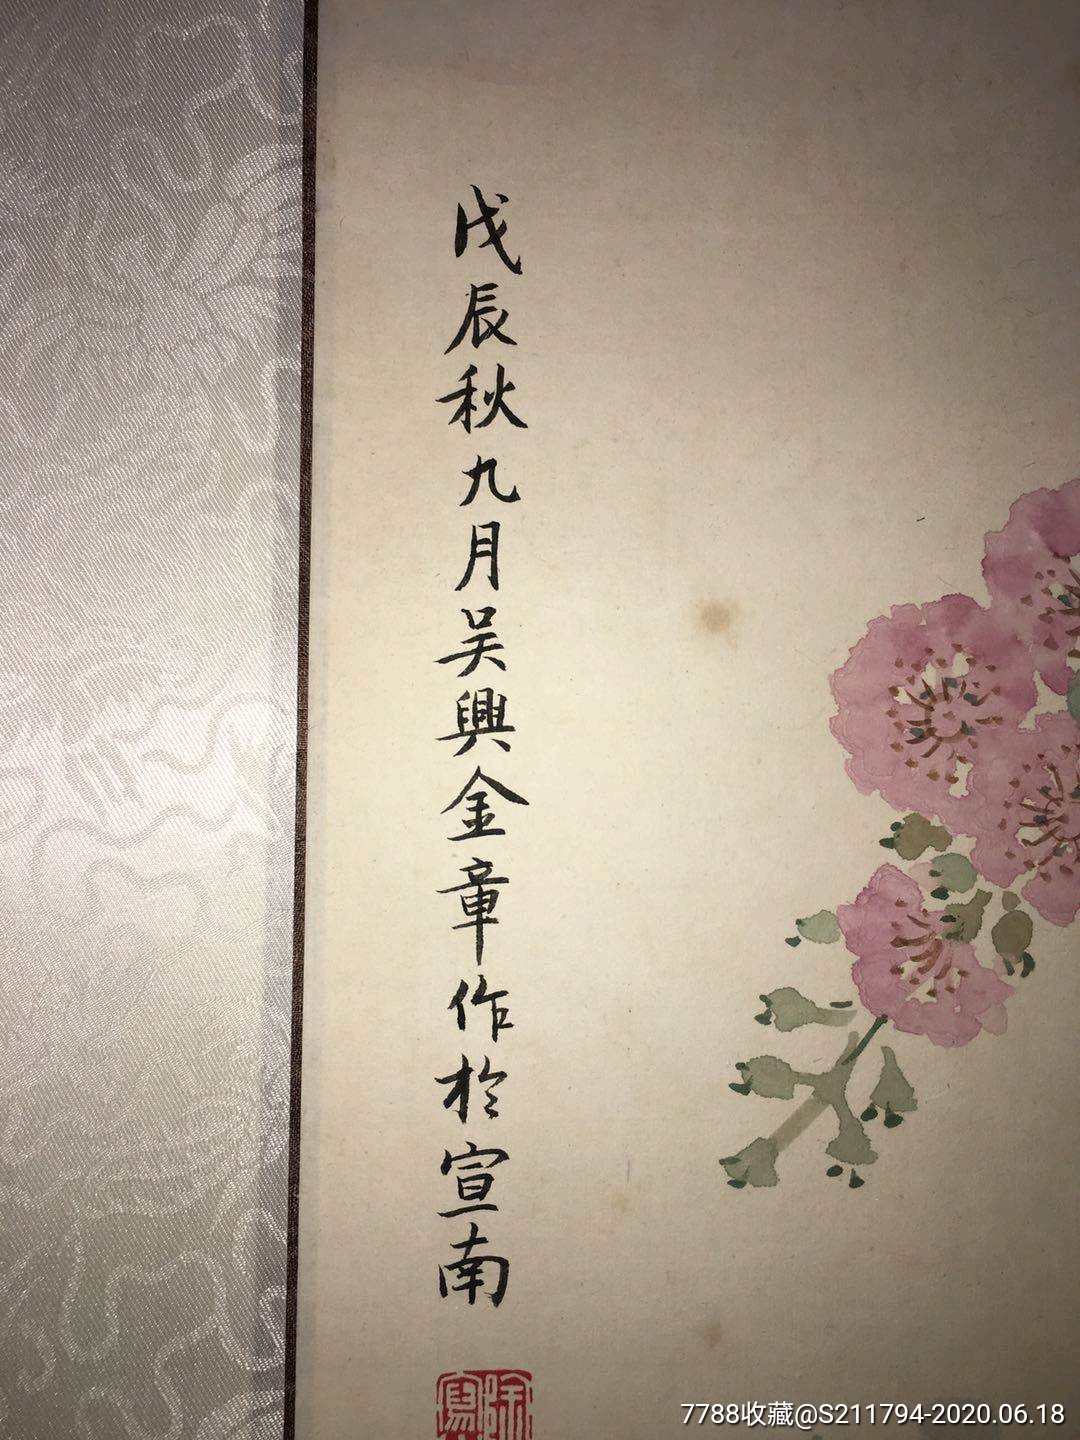 戊辰秋九月吴興金章作於宣南
7788收藏@S211794-2020.06.18